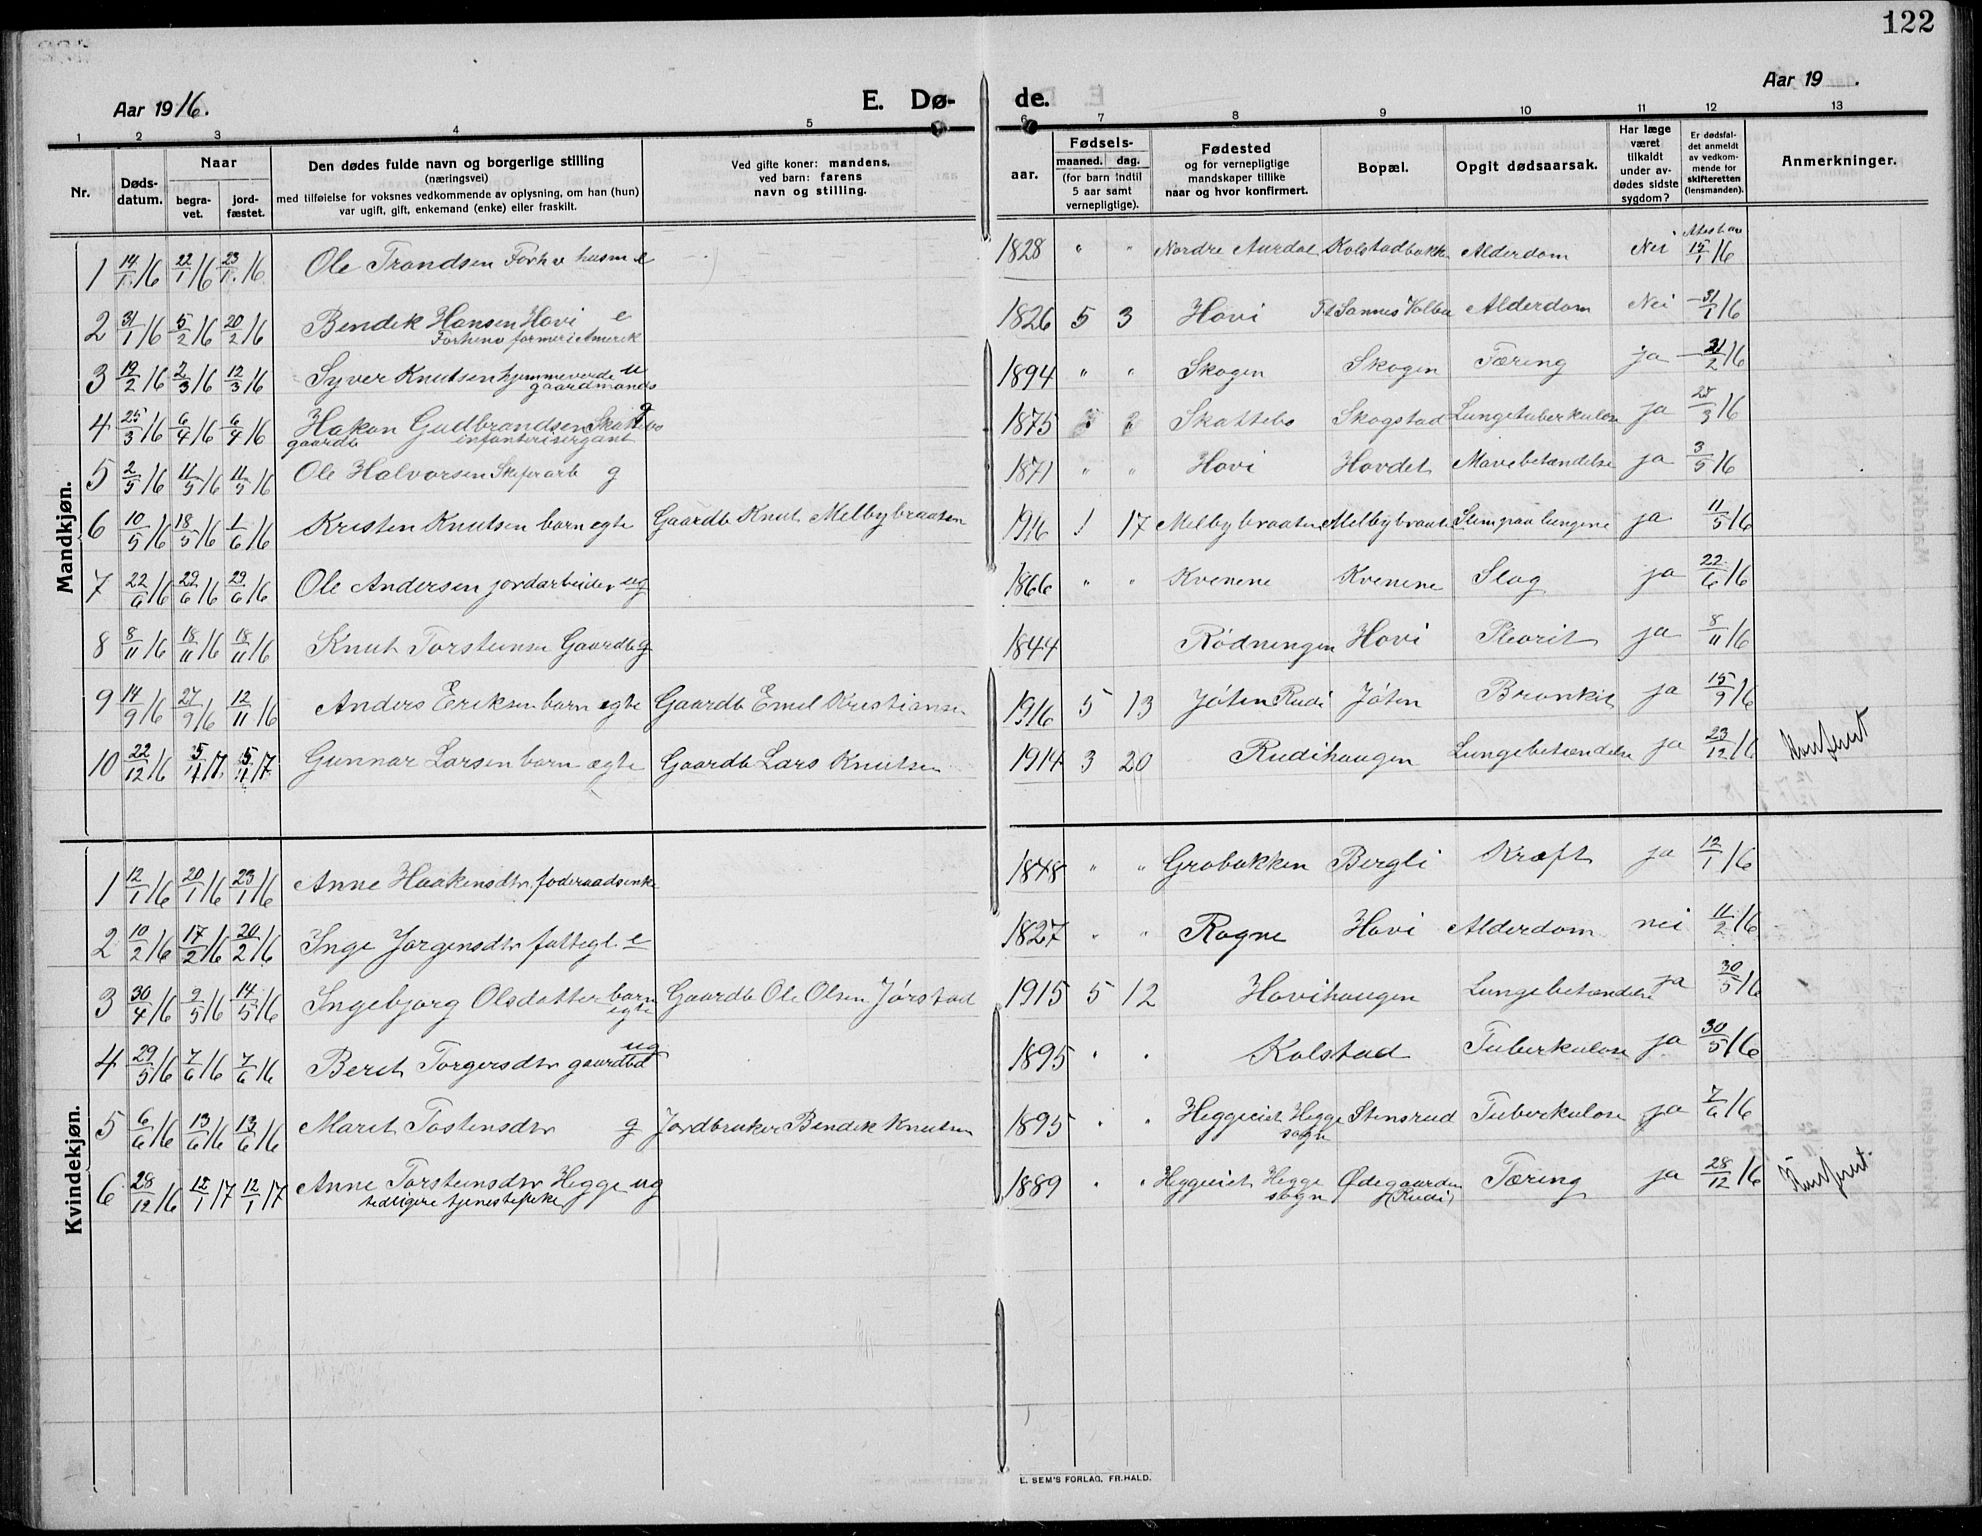 122
Aar 1916.
E. Dø-
de.
Aar 19 .
1 2 3 4 5 6 7 8 9 10 11 12 13
Nr. Døds-datum. Naar begra-vet. jord-fæstet. Den dødes fulde navn og borgerlige stilling (næringsvei) med tilføielse for voksnes vedkommende av oplysning, om han (hun) var ugift, gift, enkemand (enke) eller fraskilt. Ved gifte koner: mandens, ved barn: farens navn og stilling. Fødsels- aar. maaned. dag. (for barn indtil 5 aar samt vernepligtige). Fødested og for vernepligtige mandskaper tillike naar og hvor konfirmert. Bopæl. Opgit dødsaarsak. Har læge været tilkaldt under av-dødes sidste sygdom? Er dødsfal-det anmeldt av vedkom-mende for skifteretten (lensmanden). Anmerkninger.
Mandkjøn.
1 14/1 16 22/1 16 23/1 16 Ole Trondsen Forhv husm e 1828 " " Nordre Aurdal Kolstadbakke Alderdom Nei 15/1 16
2 31/1 16 5/2 16 20/2 16 Bendik Hansen Hovi e 1826 5 3 Hovi Alderdom Nei 31/1 16
3 19/2 16 2/3 16 12/3 16 Syver Knutsen hjemmeværde u gaardmands 1894 " " Skogen Skogen Tæring ja 21/2 16
4 25/3 16 6/4 16 6/4 16 Hakon Gudbrandsen Skattebo g 1875 Skattebo Skogstad Lungetuberkulose ja 27/3 16
gaardb infanterisergant
5 2/5 16 11/5 16 11/5 16 Ole Halvorsen Skiferarb g 1871 " " Hovi Hovdet Mavebetændelse ja 3/5 16
6 10/5 16 18/5 16 1/6 16 Kristen Knutsen barn egte Gaardb Knut Melbybraaten 1916 1 17 Melbybraaten Melbybraaten Slim paa lungene ja 11/5 16
7 22/6 16 29/6 16 29/6 16 Ole Andersen jordarbeider ug 1866 " " Kvenene Kvenene Slag ja 22/6 16
8 8/11 16 18/11 16 18/11 16 Knut Torsteinsen Gaardb g 1844 Rødningen Hovi Pleorit ja 8/11 16
9 14/9 16 27/9 16 12/11 16 Anders Eriksen barn egte Gaardb Emil Kristiansen 1916 5 13 Jøten Rudi Jøten Bronkit ja 15/9 16
10 22/12 16 5/4 17 Gunnar Larsen barn egte Gaardb Lars Knutsen 1914 3 20 Rudihaugen Lungebetændelse ja 23/12 16 Konferert
Kvindekjøn.
1 12/1 16 20/1 16 23/1 16 Anne Haakensdtr. føderaadsenke 1848 " " Grobakken Bergli Kræft ja 12/1 16
2 10/2 16 17/2 16 20/2 16 Inge Jørgensdtr fattegl. e 1827 " " Rogne Hovi Alderdom nei 11/2 16
3 30/4 16 9/5 16 14/5 16 Ingebjørg Olsdatter barn egte Gaardb Ole Olsen Jørstad 1915 5 12 Hovihaugen Lungebetændelse ja 30/5 16
4 29/5 16 7/6 16 7/6 16 Berit Torgersdtr gaardbd ug 1895 " " Kolstad Tuberkulose ja 30/5 16
5 6/6 16 13/6 16 13/6 16 Marit Tostensdtr g Jordbruker Bendik Knutsen 1895 " " Heggeiet Hegge sogn Stensrud Tuberkulose ja 7/6 16
6 28/12 16 12/1 17 12/1 17 Anne Torsteinsdtr Hegge ug 1889 " " Heggeiet Hegge sogn Ødegaarden (Rudi) Tæring ja 28/12 16 Konferert.
tidligere tjenestepike
E. SEM'S FORLAG, FR.HALD.